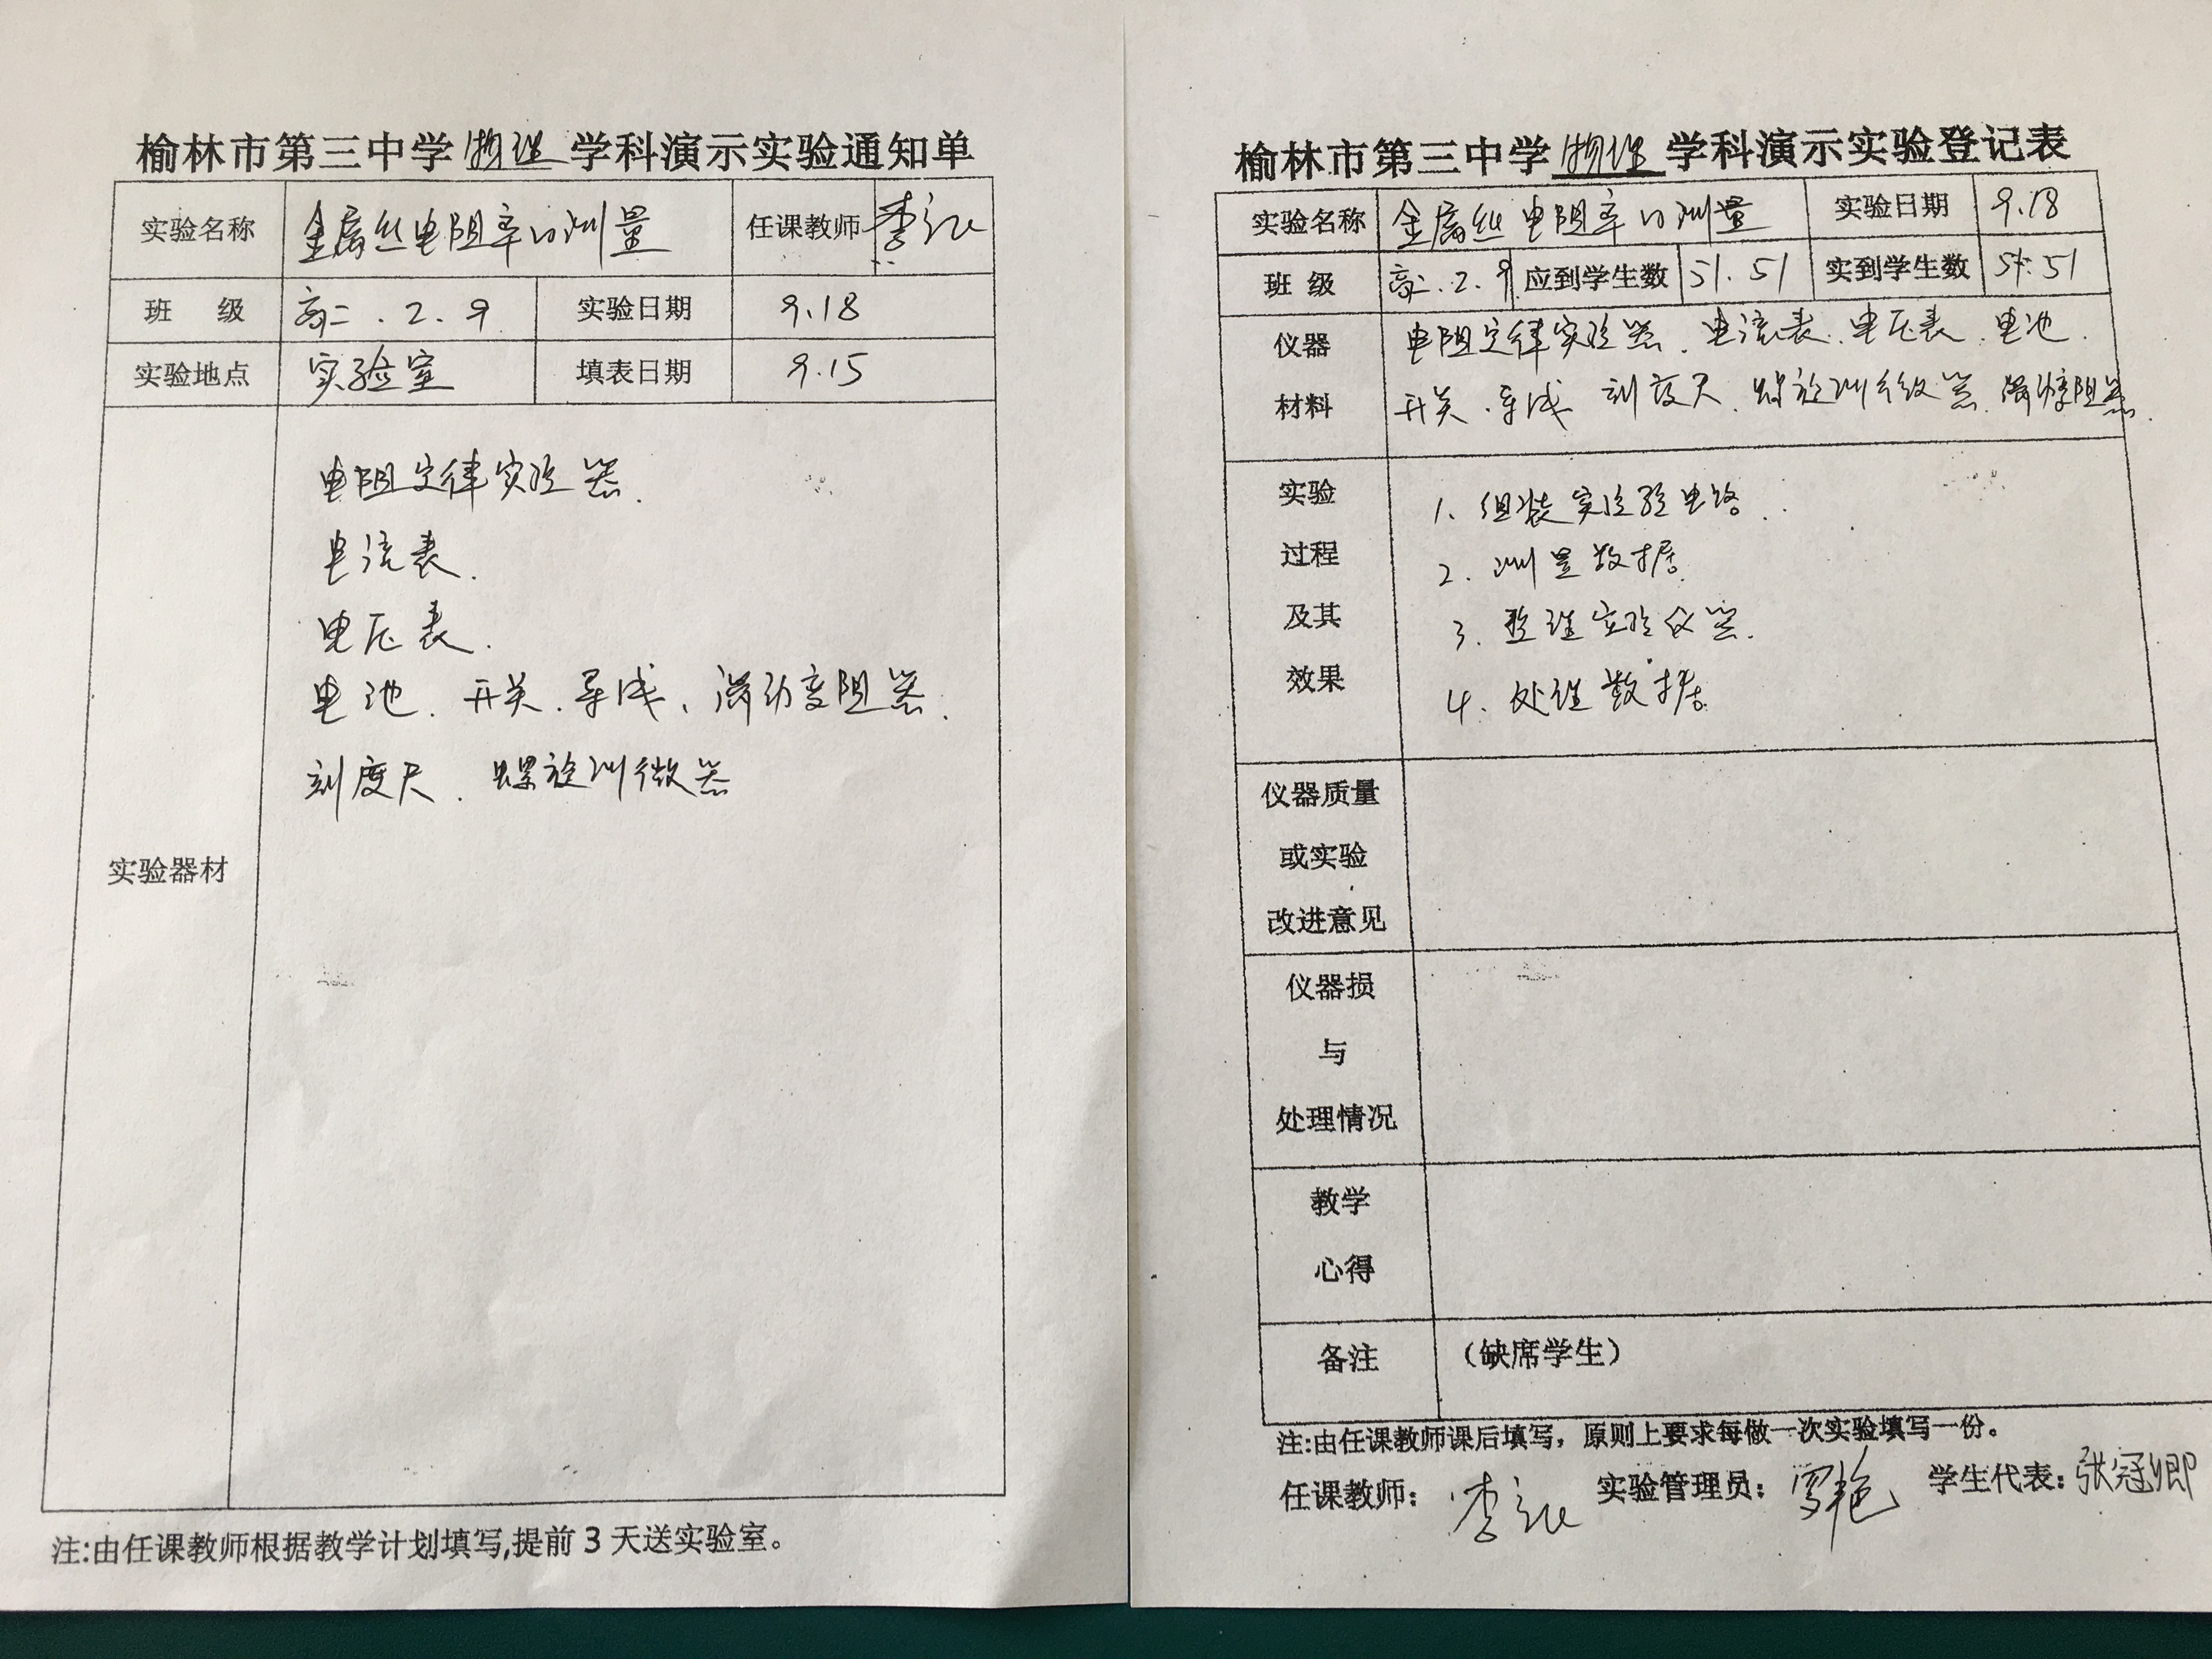 榆林市第三中学物理学科演示实验通知单
实验名称 金属丝电阻率的测量 任课教师 李
班 级 高二.2.9 实验日期 9.18
实验地点 实验室 填表日期 9.15
实验器材
电阻定律实验器.
电流表.
电压表.
电池、开关、导线、滑动变阻器.
刻度尺、螺旋测微器
注:由任课教师根据教学计划填写,提前3天送实验室。
榆林市第三中学物理学科演示实验登记表
实验名称 金属丝电阻率的测量 实验日期 9.18
班 级 高二.2.9 应到学生数 51.51 实到学生数 51.51
仪器 电阻定律实验器、电流表、电压表、电池.
材料 开关、导线 刻度尺、螺旋测微器、滑动变阻器.
实验 1、组装实验电路.
过程 2、测量数据.
及其 3、整理实验仪器.
效果 4、处理数据.
仪器质量
或实验
改进意见
仪器损
与
处理情况
教学
心得
备注 (缺席学生)
注:由任课教师课后填写，原则上要求每做一次实验填写一份。
任课教师: 李 实验管理员: 学生代表: 张冠卿